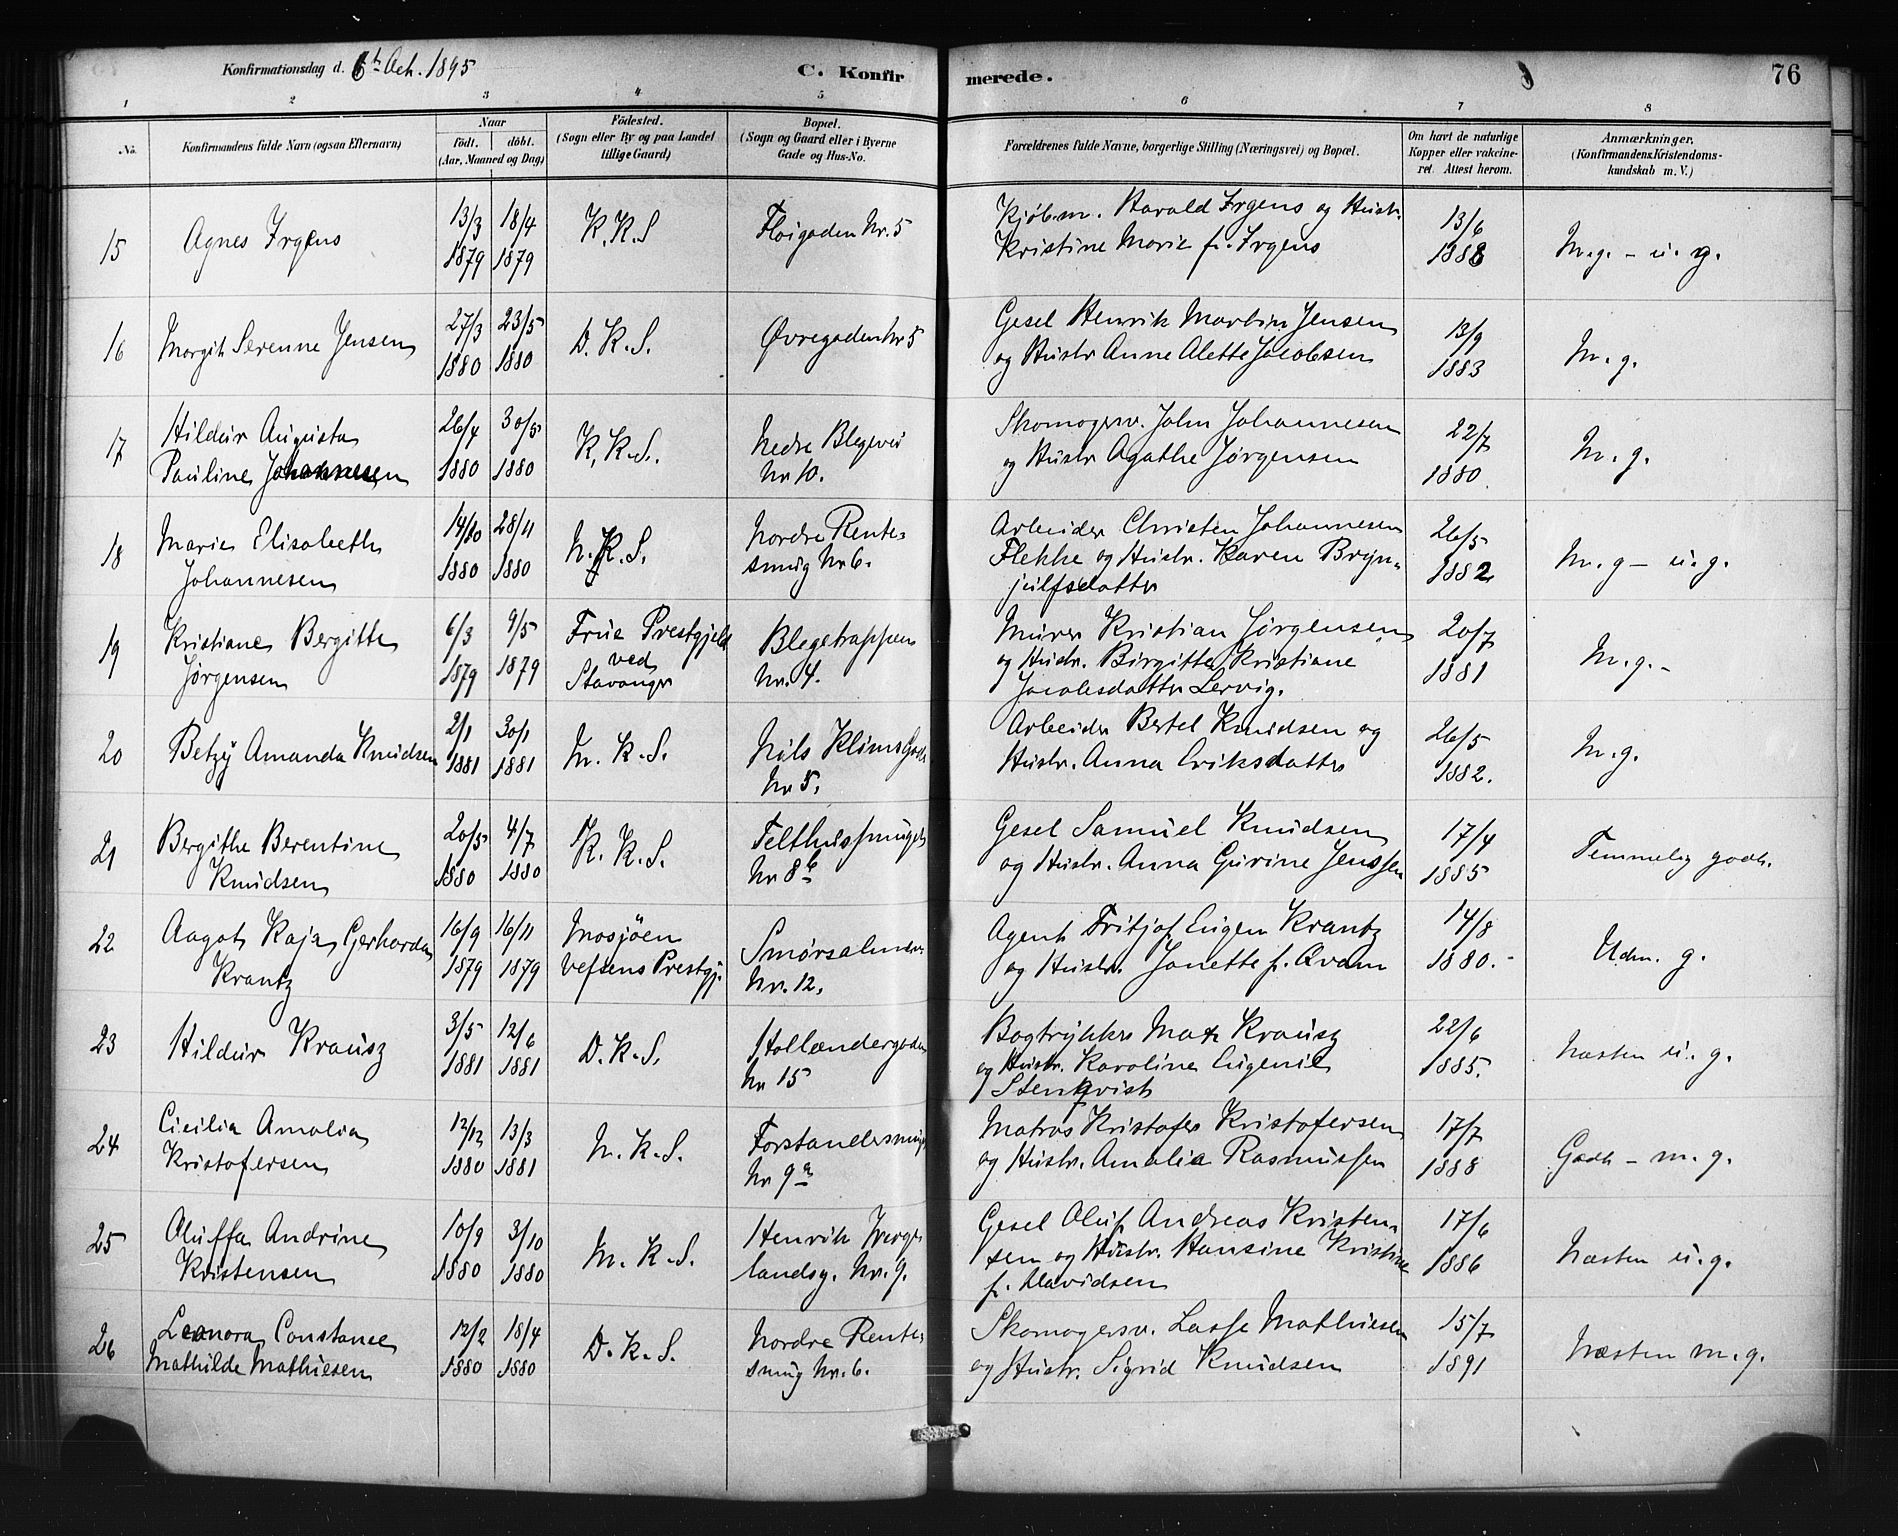 Konfirmationsdag d. 6th Oct. 1895
C. Konfirmerede.
76
1 2 3 4 5 6 7 8
No. Konfirmandens fulde Navn (ogsaa Efternavn) Naar födt. döbt. (Aar, Maaned og Dag) Födested. (Sogn eller By og paa Landet tillige Gaard) Bopæl. (Sogn og Gaard eller i Byerne Gade og Hus-No. Forældrenes fulde Navne, borgerlige Stilling (Næringsvei) og Bopæl. Om havt de naturlige Kopper eller vakcineret. Attest herom. Anmærkninger, (Konfirmandens Kristendomskundskab m. V.)
15 Agnes Irgens 13/3 1879 18/4 1879 K.K.S Fløigaden Nr. 5 Kjøbm. Harald Irgens og Hustr. Kristine Marie f. Irgens 13/6 1888 M.g. - u. g.
16 Margit Serenne Jensen 27/3 1880 23/5 1880 D. K. S. Øvregaden Nr 5 Gesel Henrik Martin Jensen og Hustr Anne Alette Jacobsen 13/9 1883 M. g.
17 Hildur Augusta Pauline Johannesen 26/4 1880 30/5 1880 K. K. S. Nedre Blegevei Nr 10. Skomagersv. John Johannesen og Hustr Agathe Jørgensen 22/7 1880. M. g.
18 Marie Elisabeth Johannesen 14/10 1880 28/11 1880 N. K. S. Nordre Rentesmug Nr 6. Arbeider Christen Johannesen Flekke og Hustr. Karen Brynjulfsdatter 26/5 1882 M. g - u. g.
19 Kristiane Bergitte Jørgensen 6/3 1879 9/5 1879 Frue Prestgjeld ved Stavanger Blegetrappen Nr. 4. Murer Kristian Jørgensen og Hustr. Birgitte Kristiane Jacobsdatter Lervig. 20/7 1881 M. g. -
20 Betzy Amanda Knudsen 2/1 1881 30/1 1881 M. K. S. Nils Klims Gade Nr 5. Arbeider Bertel Knudsen og Hustr. Anna Eriksdatter 26/5 1882. M. g.
21 Bergithe Berentine Knudsen 20/5 1880 4/7 1880 K. K. S. Felthussmuget Nr 8b Gesel Samuel Knudsen og Hustr. Anna Gurine Jenssen 17/4 1885 Temmelig godt.
22 Aagot Kaja Gerharda Krantz 16/9 1879 16/11 1879 Mosjöen Vefsens Prestgj. Smørsalmen Nr. 12. Agent Fritjof Eugen Krantz og Hustr. Janette f. Qvam 14/8 1880. - Udm. g.
23 Hildur Krausz 3/5 1881 12/6 1881 D. K. S. Hollændergaden Nr 15 Bogtrykker Max Krausz og Hustr. Karoline Eugenie Stenqvist 22/6 1885. Næsten u. g.
24 Cicilia Amalia Kristofersen 12/12 1880 13/3 1881 N. K. S. Forstandersmug Nr 9a Matros Kristofer Kristofersen og Hustr. Amalia Rasmussen 17/7 1888 Godt - m. g.
25 Oluffa Andrine Kristensen 10/9 1880 3/10 1880 M. K. S. Henrik Wergelandsg. Nr. 9. Gesel Oluf Andreas Kristensen og Hustr. Hansine Kristine f. Davidsen 17/6 1886 Næsten u. g.
26 Leonora Constance Mathilde Mathiesen 12/2 1880 18/4 1880 D. K. S. Nordre Rentesmug Nr. 6. Skomagersv. Lasse Mathiesen og Hustr. Sigrid Knudsen 15/7 1891 Næsten m. g.